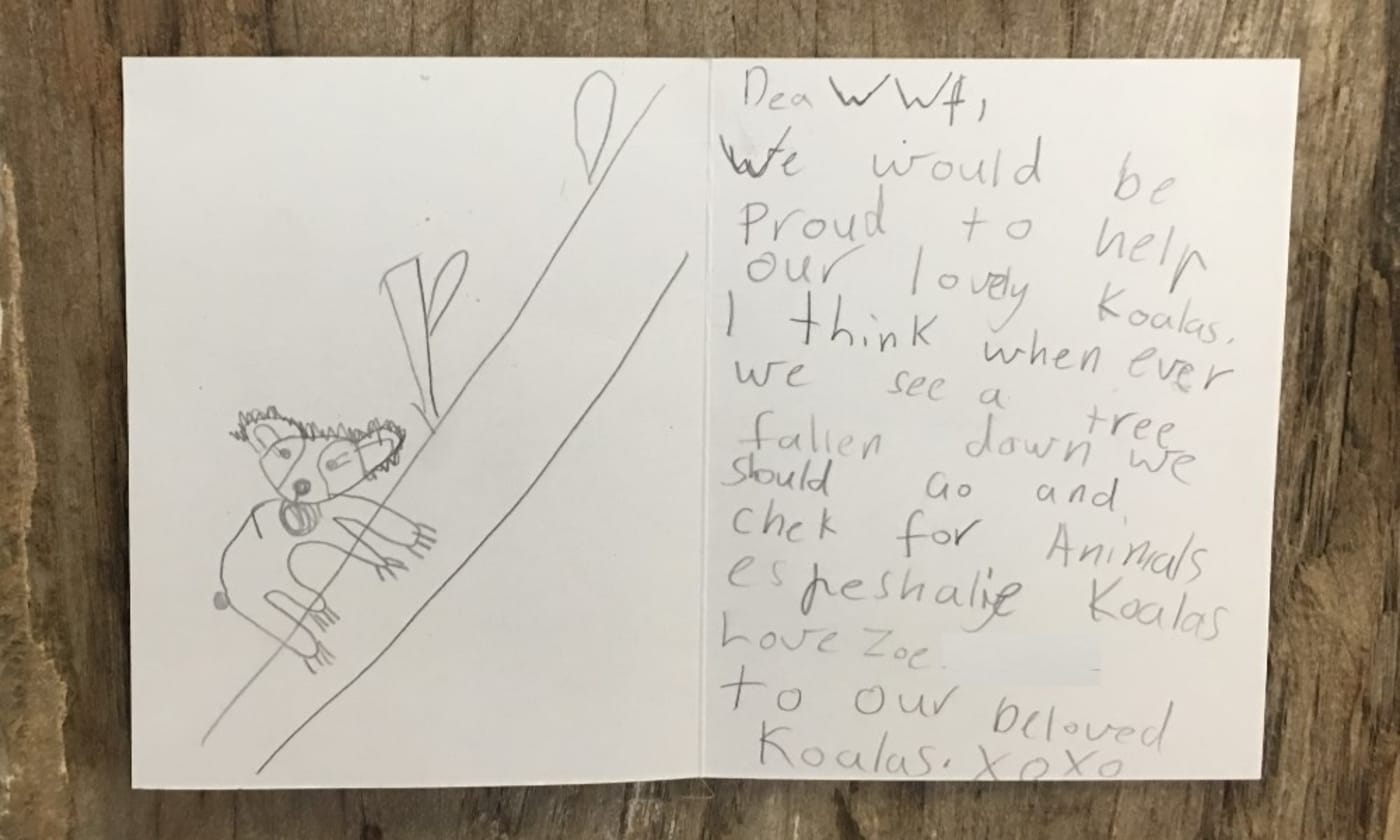 Dea WWf,
We would be
Proud to help
our lovely Koalas.
I think when ever
we see a tree
fallen down we
should Go and
chek for Animals
espeshalie Koalas
Love Zoe.
to our beloved
Koalas. XoXo